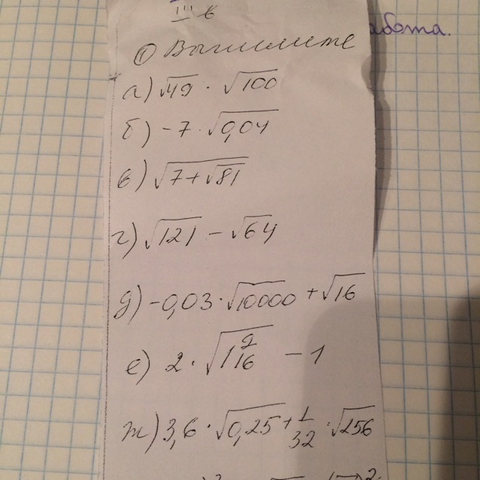 III в
абота.
① Вычислите
а) √49 · √100
б) -7 · √0,04
в) √(7+√81)
г) √121 - √64
д) -0,03 · √10000 + √16
е) 2 · √(1 9/16) - 1
ж) 3,6 · √0,25 + 1/32 · √256